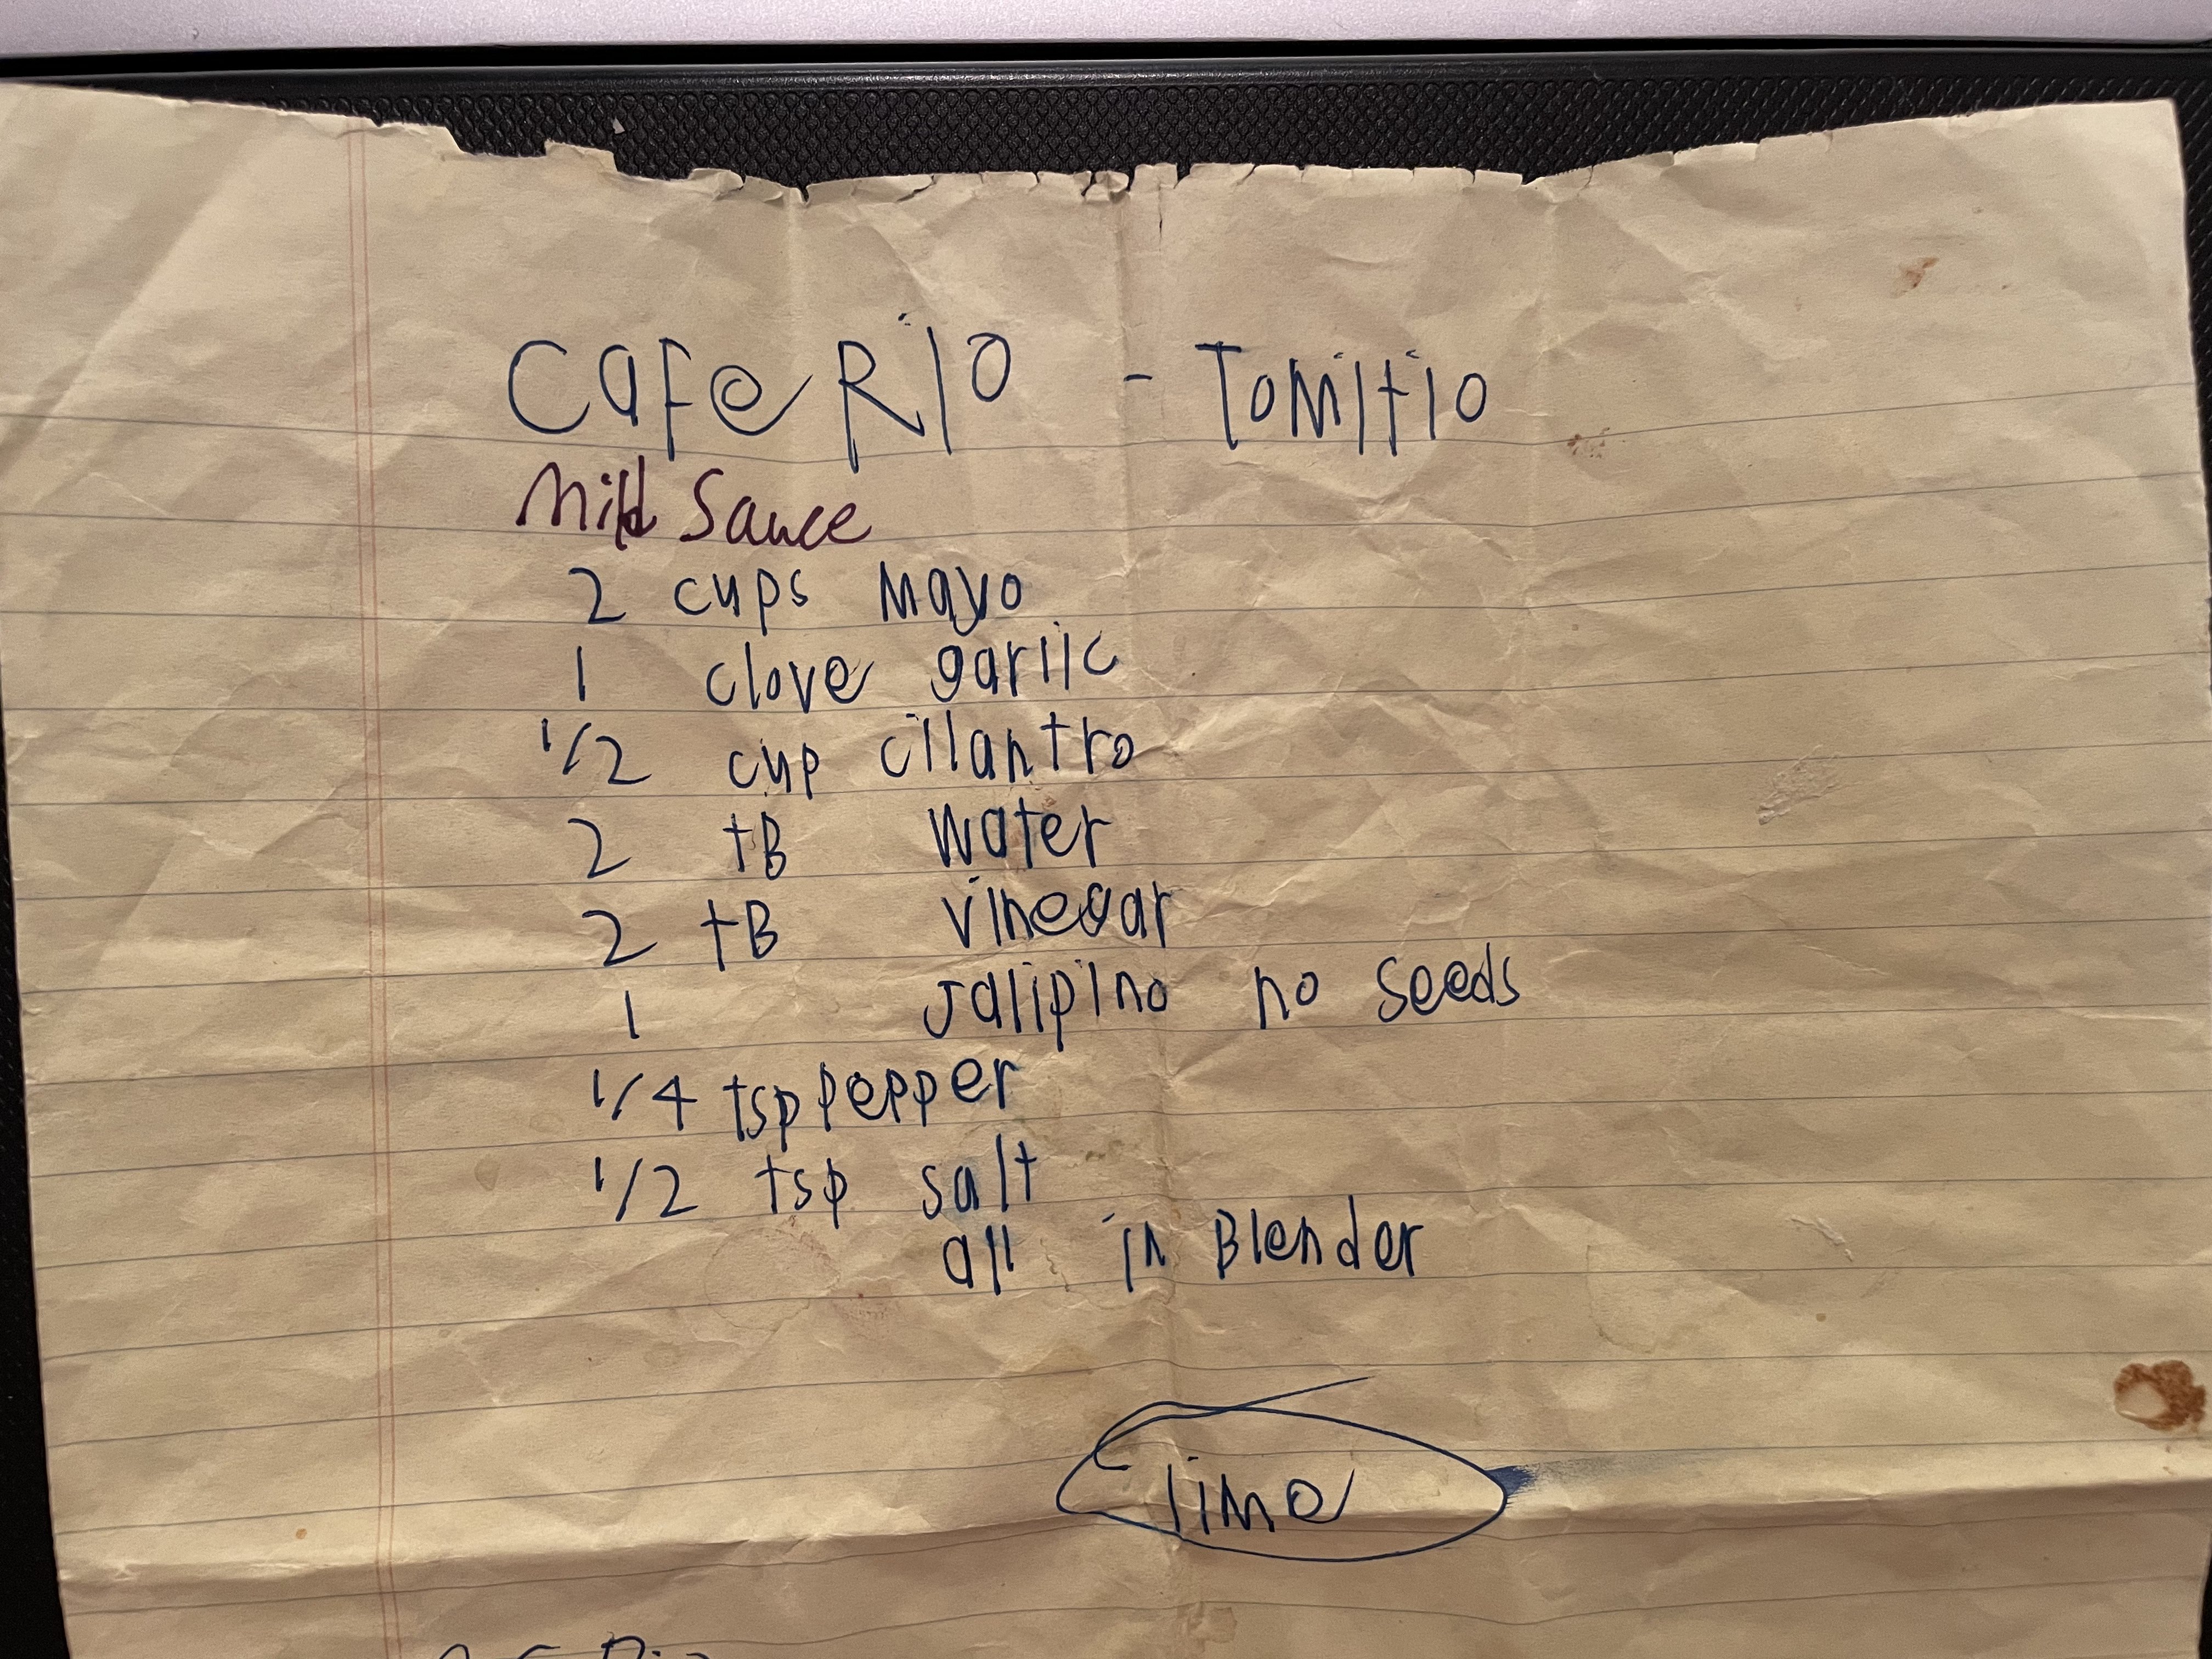 Cafe Rio - Tomitio
Mild Sauce
2 cups Mayo
1 clove garlic
1/2 cup cilantro
2 tB water
2 tB vinegar
1 Jalipino no seeds
1/4 tsp Pepper
1/2 tsp salt
all in Blender
lime